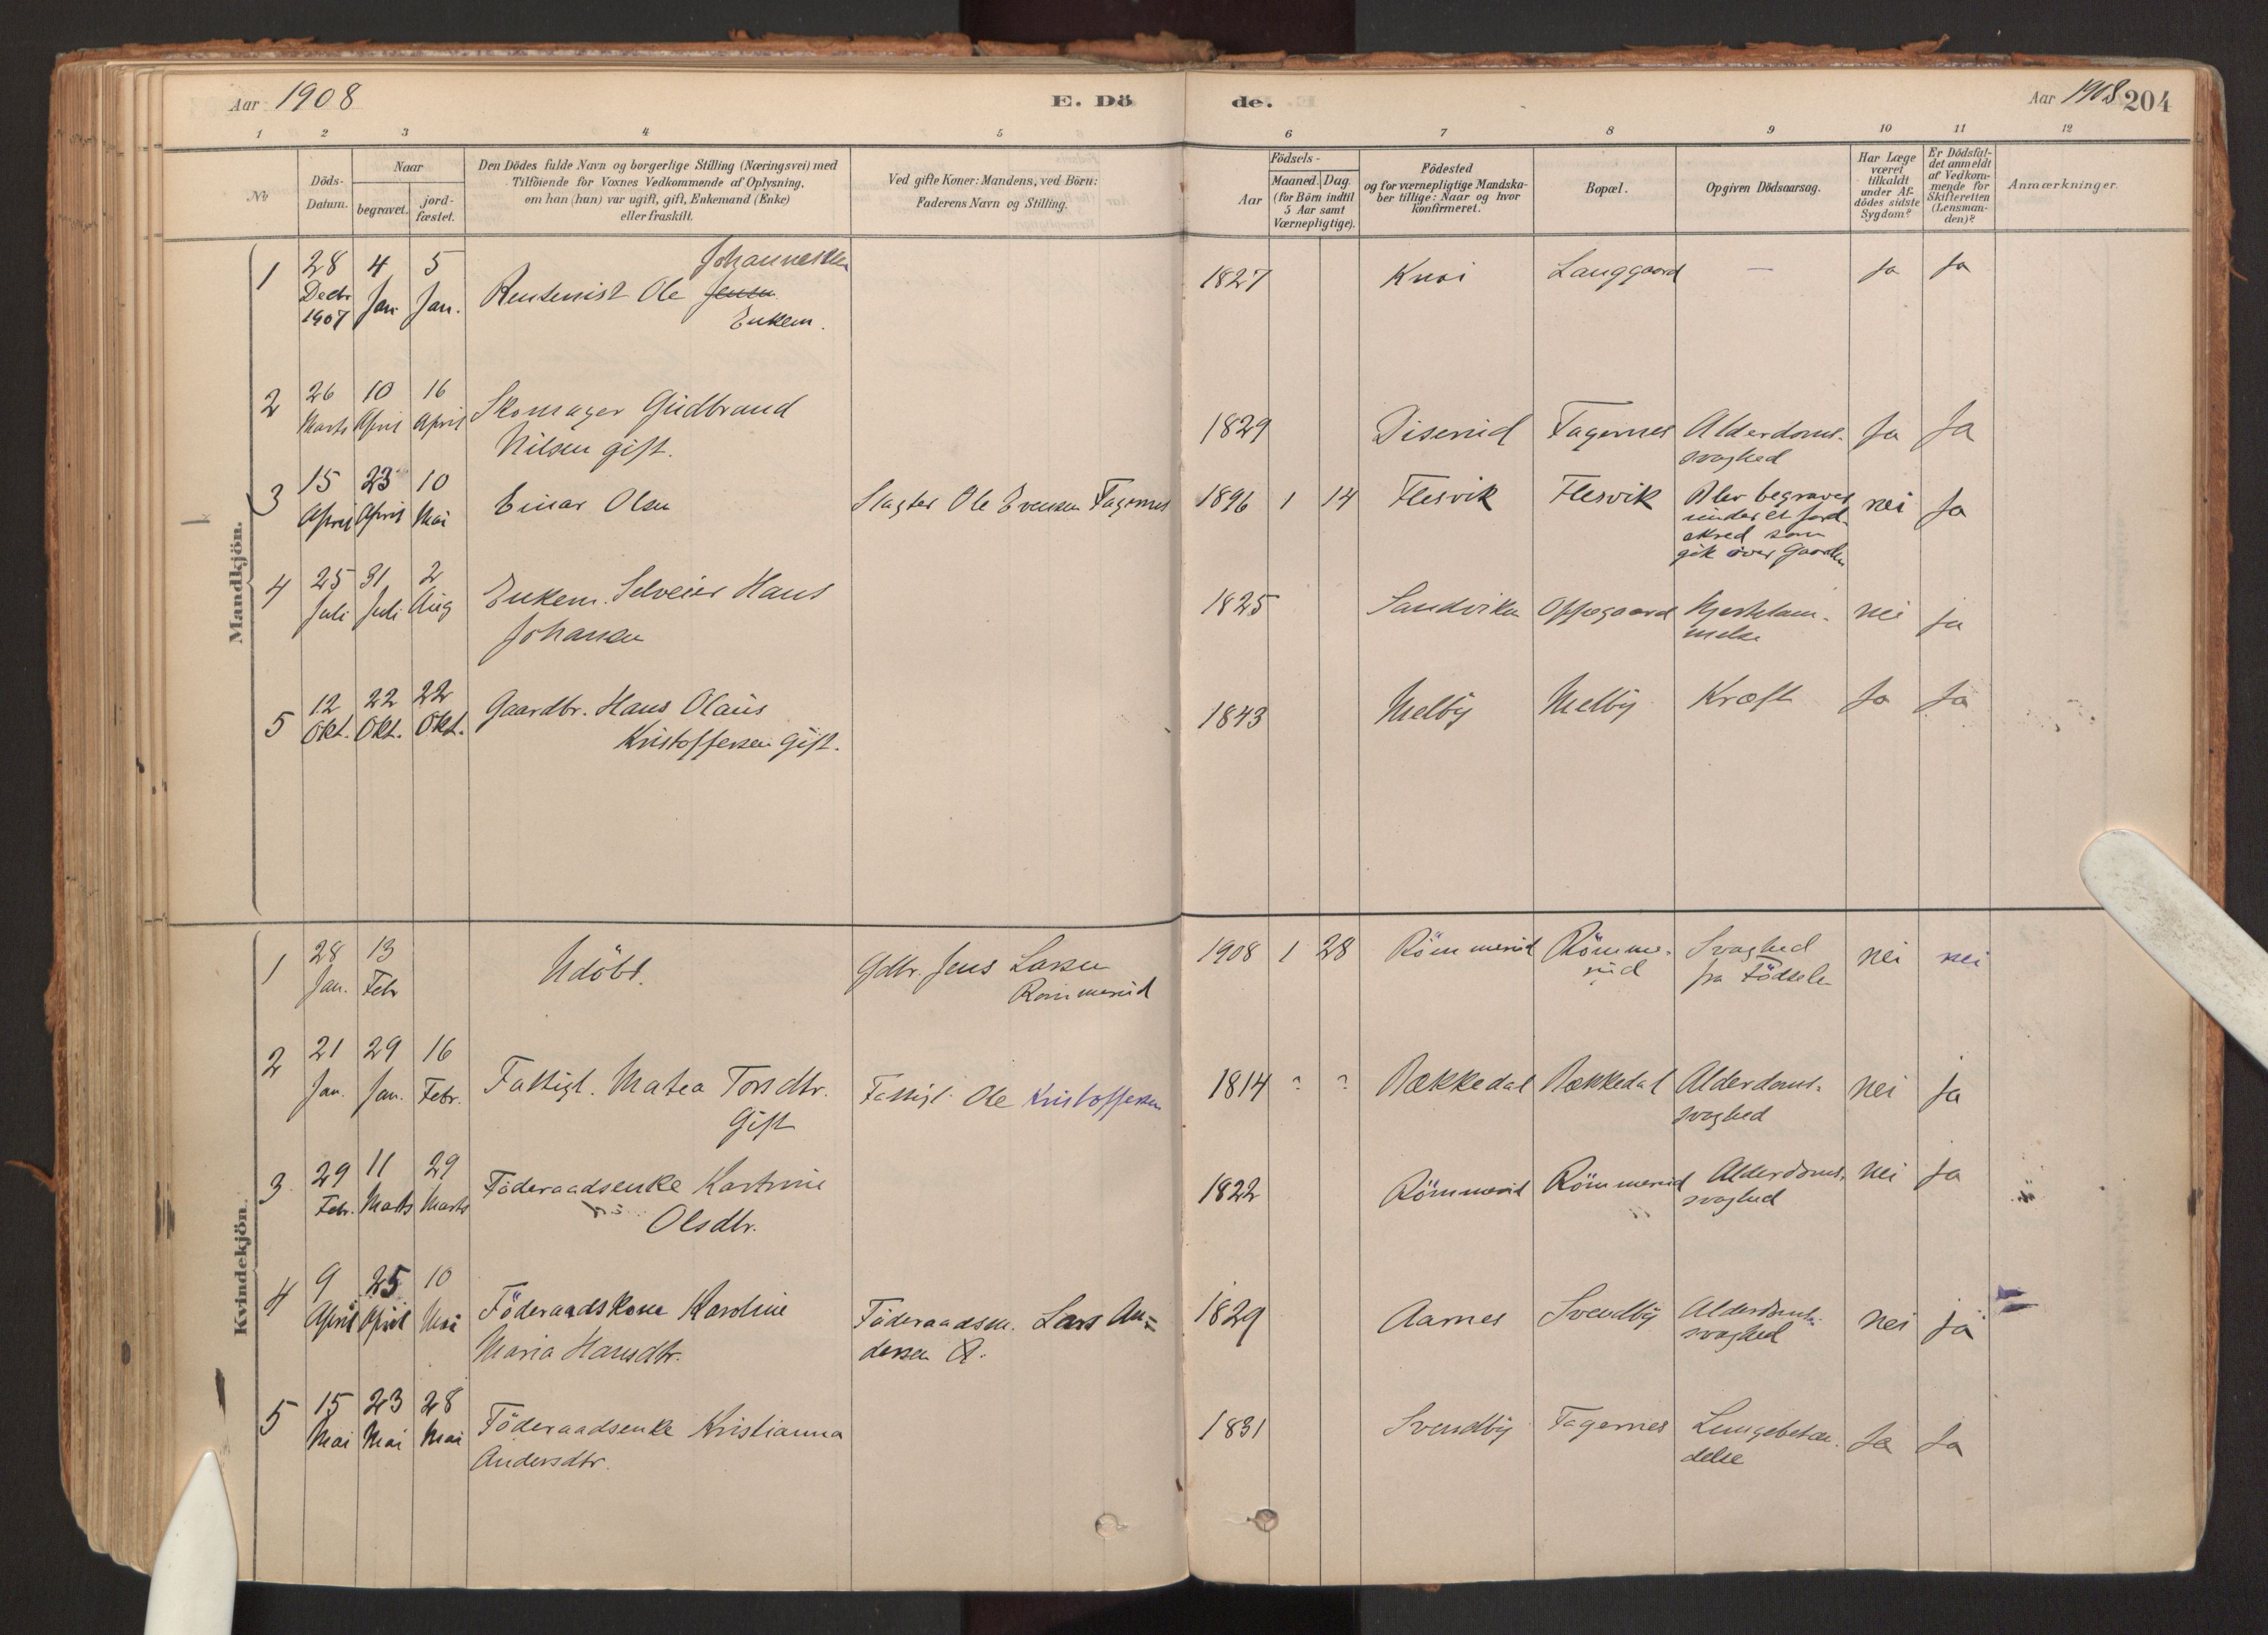 Aar 1908
E. Dö
de.
Aar 1908
204
1 2 3 4 5 6 7 8 9 10 11 12
No
Döds-
Datum.
Naar
begravet.
jord-
fæstet.
Den Dödes fulde Navn og borgerlige Stilling (Næringsvei) med
Tilföiende for Voxnes Vedkommende af Oplysning,
om han (hun) var ugift, gift, Enkemand (Enke)
eller fraskilt.
Ved gifte Koner: Mandens, ved Börn:
Faderens Navn og Stilling.
Födsels-
Aar
Maaned.
Dag.
(for Börn indtil
5 Aar samt
Værnepligtige).
Födested
og for værnepligtige Mandska-
ber tillige: Naar og hvor
konfirmeret.
Bopæl.
Opgiven Dödsaarsag.
Har Læge
været
tilkaldt
under Af-
dödes sidste
Sygdom?
Er Dödsfal-
det anmeldt
af Vedkom-
mende for
Skifteretten
(Lensman-
den)?
Anmærkninger.
Mandkjön.
Johannessen
1 28 4 5
Decbr Jan. Jan. Rentenist Ole Jensen
1907 Enkem.
1827 Knai Langgaard — Ja Ja
2 26 10 16 Skomager Gudbrand
Marts April April Nilsen gift.
1829 Diserud Fagernes Alderdoms- Ja Ja
svaghed
3 15 23 10 Einar Olsen Slagter Ole Evensen Fagernes
April April Mai
1896 1 14 Flesvik Flesvik Blev begravet nei Ja
under et jord-
skred som
gik over Gaarden
4 25 31 2 Enkem. Selveier Hans
Juli Juli Aug Johansen
1825 Sandviken Oppegaard Hjertelam- nei ja
melse
5 12 22 22 Gaardbr. Hans Olaus
Okt. Okt. Okt. Kristoffersen gift.
1843 Melby Melby Kræft Ja Ja
Kvindekjön.
1 28 13 Udöbt. Gdbr. Jens Larsen
Jan. Febr Römmerud
1908 1 28 Römmerud Römme- Svaghed nei nei
rud fra Födselen
2 21 29 16 Fattigl. Matea Torsdtr. Fattigl. Ole Kristoffersen
Jan. Jan. Febr. Gift
1814 ? ? Bækkedal Bækkedal Alderdoms- nei ja
svaghed
3 29 11 29 Föderaadsenke Kartrine
Febr. Marts Marts Olsdtr.
1822 Römmerud Römmerud Alderdoms- nei ja
svaghed
4 9 25 10 Föderaadskone Karoline Föderaadsm. Lars An=
April April Mai Maria Hansdtr. dersen
1829 Aarnes Svendby Alderdoms- nei ja
svaghed
5 15 23 28 Föderaadsenke Kristianna
Mai Mai Mai Andersdtr.
1831 Svendby Fagernes Lungebetæn- Ja Ja
delse